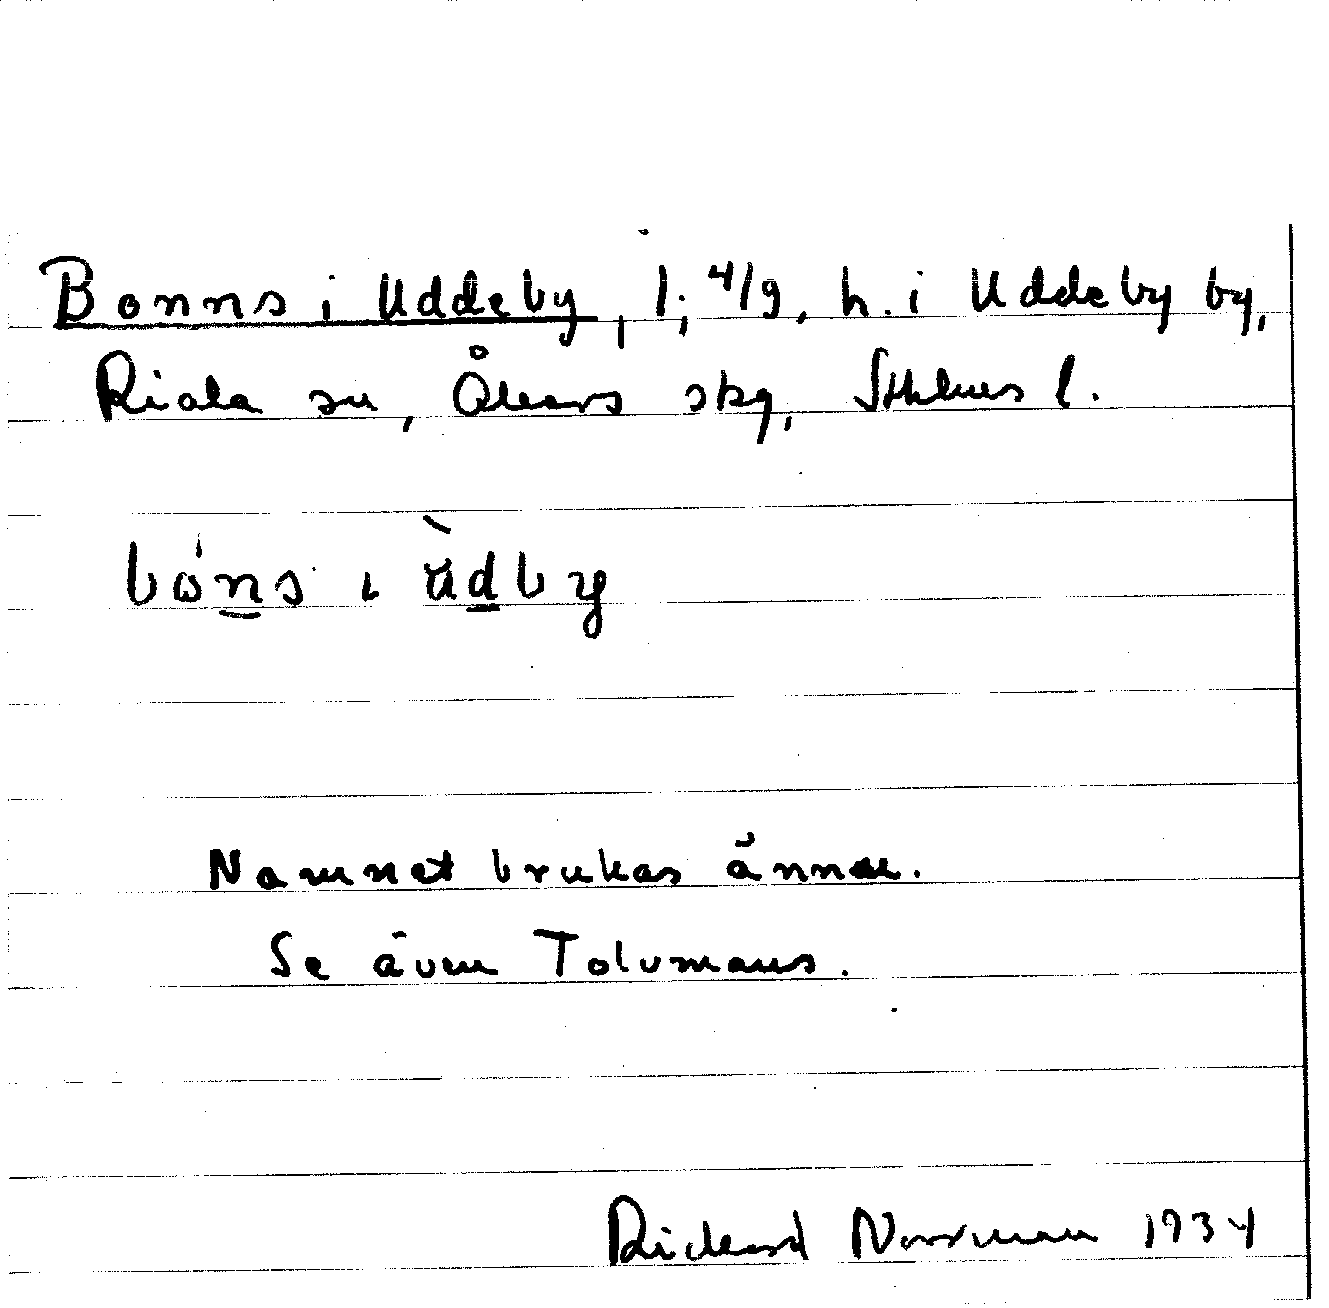 Bonns i Uddeby, 1; 4/9, h. i Uddeby by,
Riala sn, Åkers skg, Sthlms l.
bóns ɩ ùdby
Namnet brukas ännu.
Se även Tolvmans.
Rickard Norrman 1934